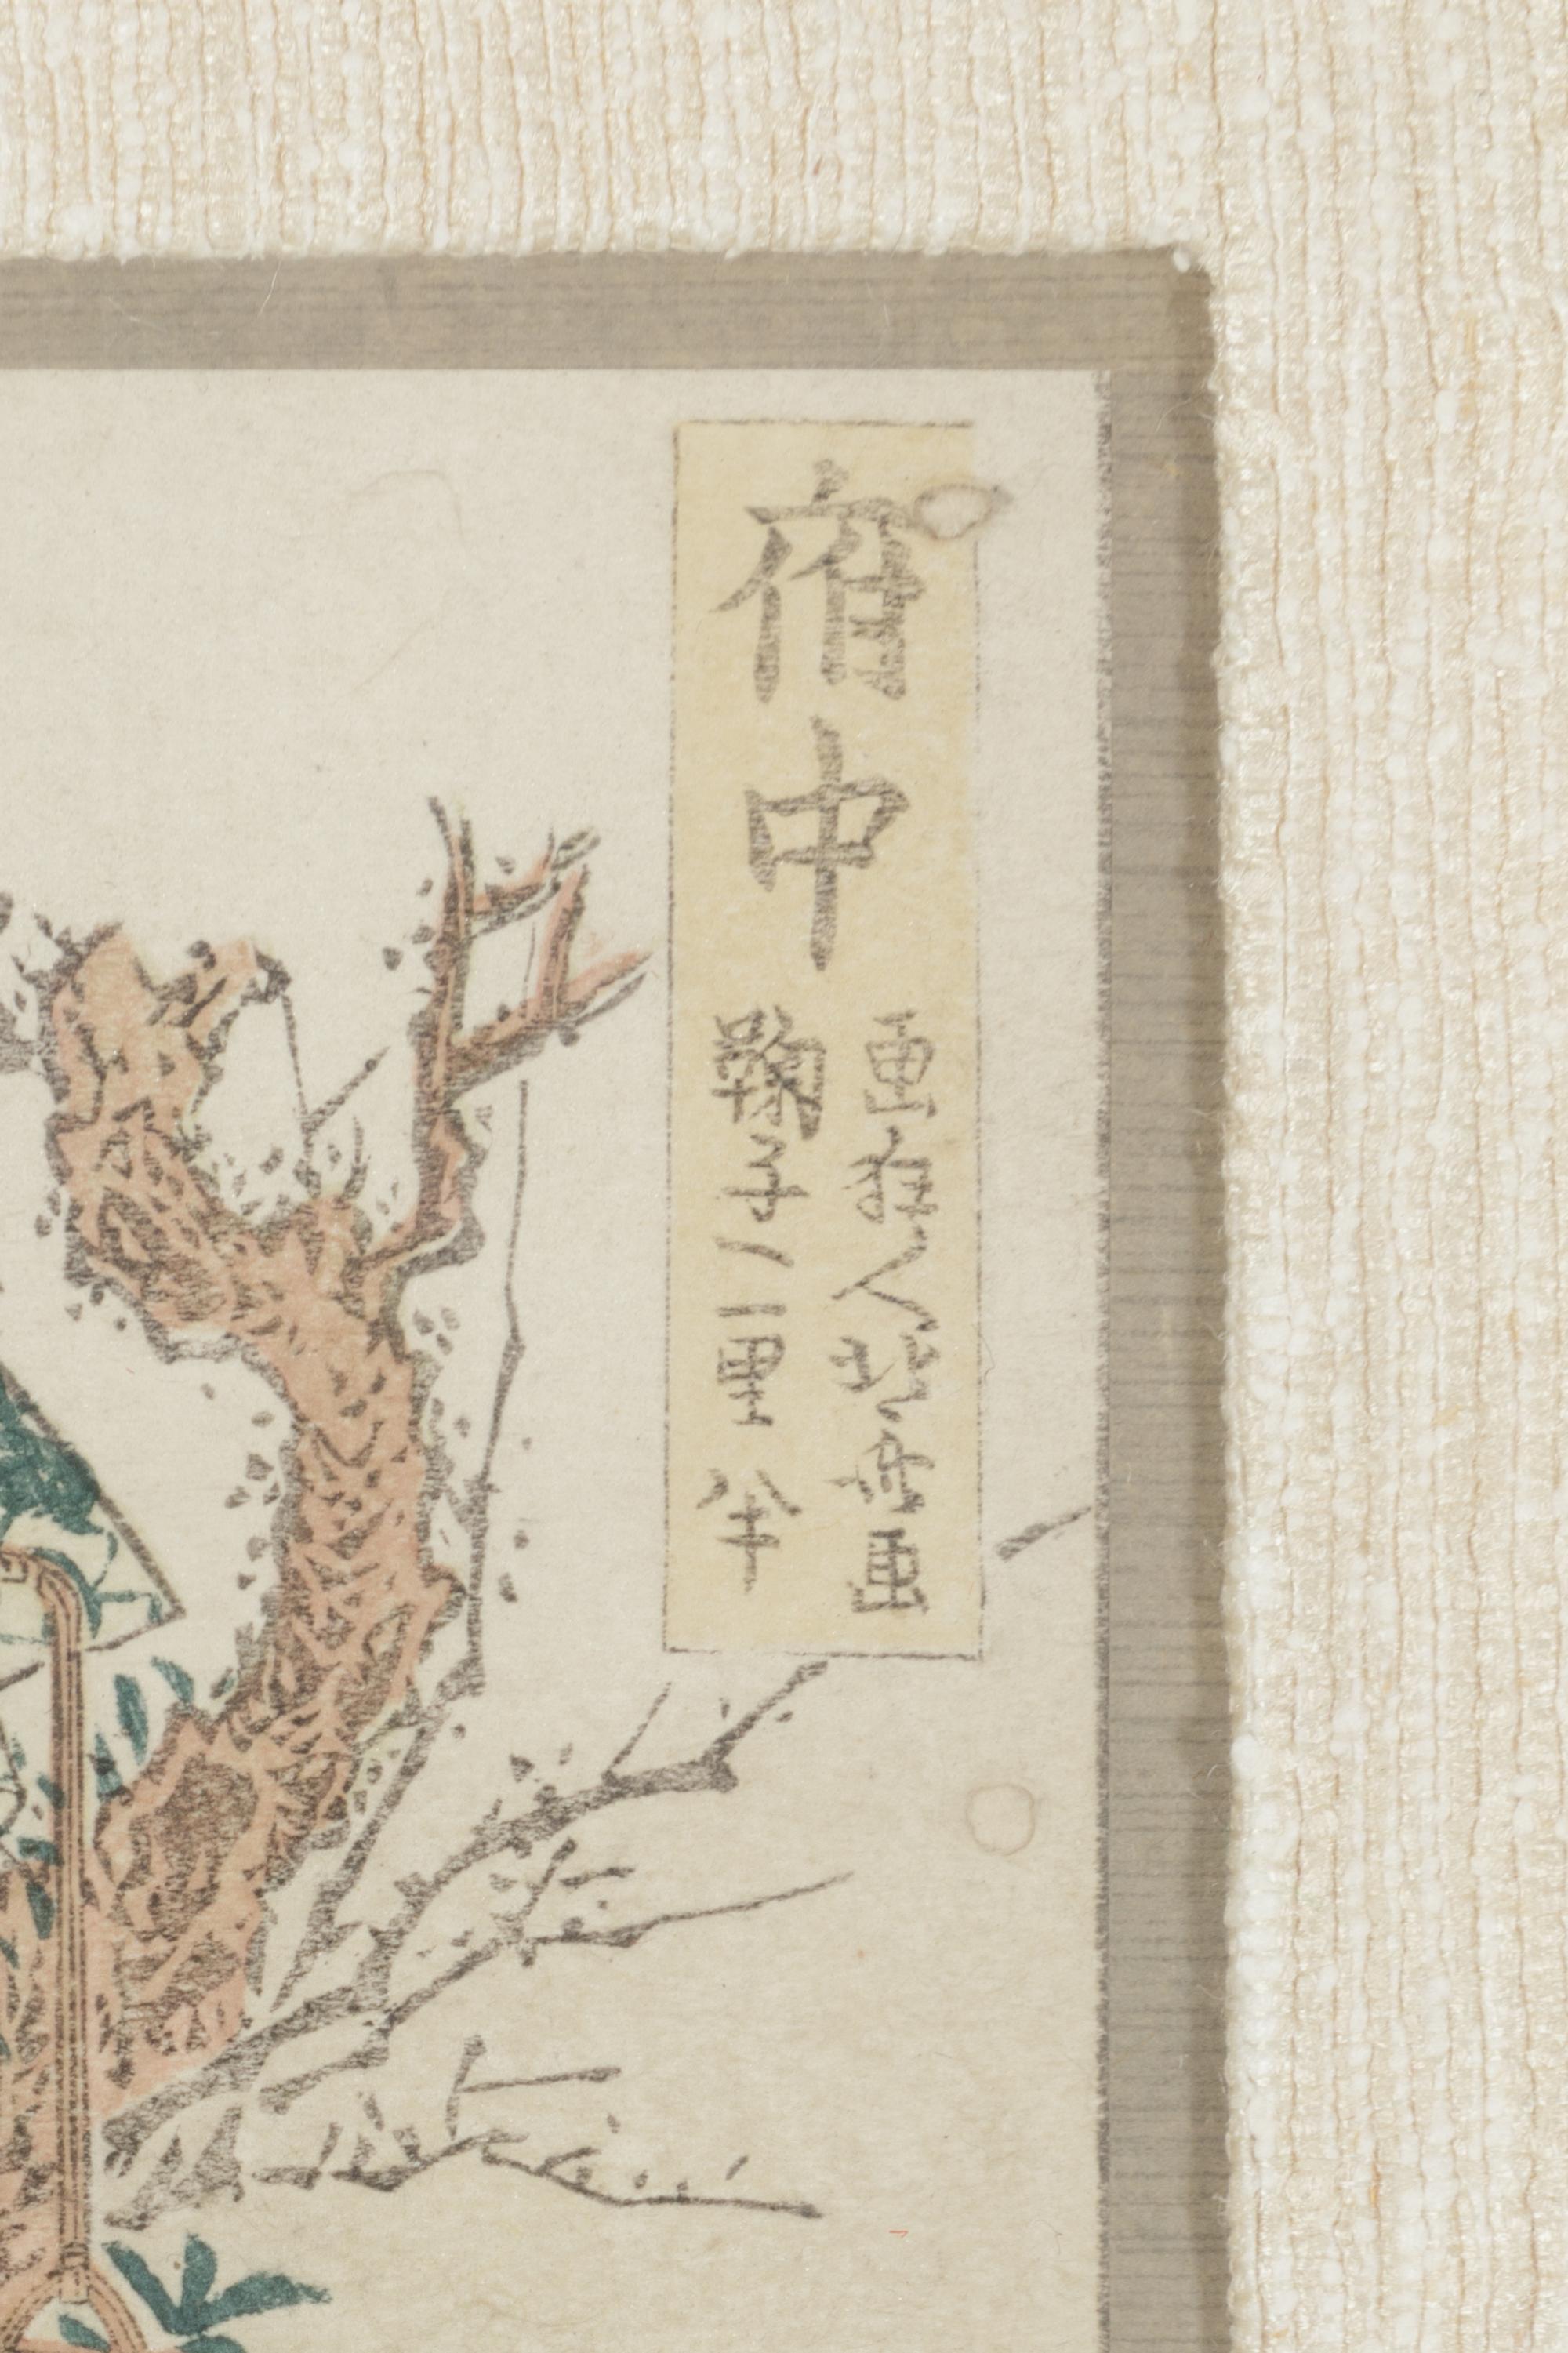 府中
画狂人北斎画
鞠子ノ一里半